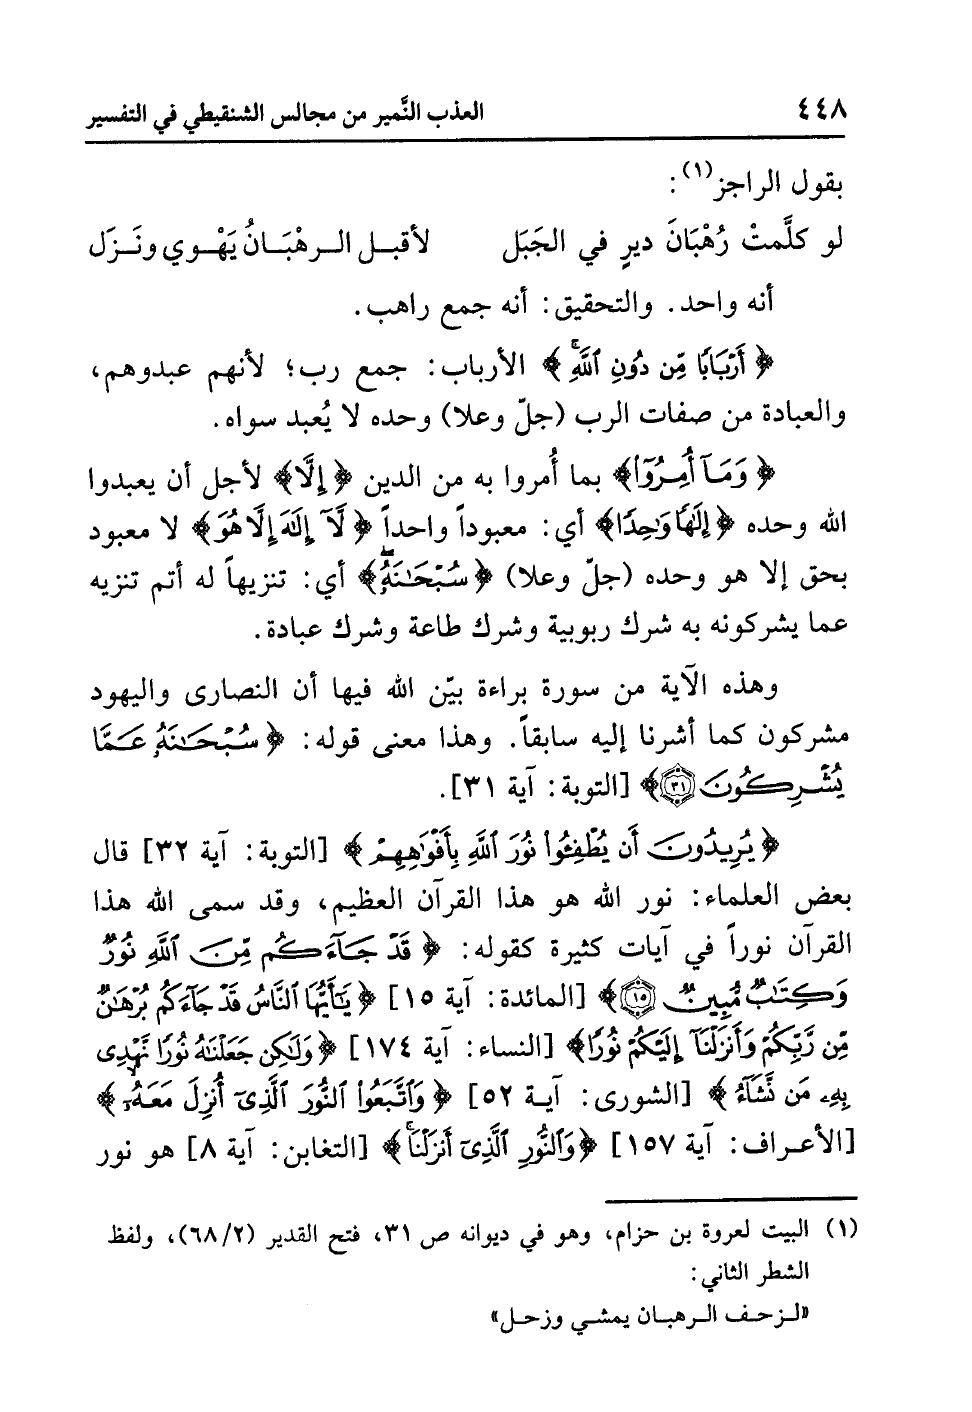 ٤٤٨ العذب النَّمير من مجالس الشنقيطي في التفسير
بقول الراجز(١):
لو كلَّمتْ رُهْبَانَ ديرٍ في الجَبَل لأقبـل الـرهْبَـانُ يَهْـوي ونَـزَل
أنه واحد. والتحقيق: أنه جمع راهب.
﴿ أَرْبَابًا مِّن دُونِ ٱللَّهِ ﴾ الأرباب: جمع رب؛ لأنهم عبدوهم،
والعبادة من صفات الرب (جلّ وعلا) وحده لا يُعبد سواه.
﴿ وَمَآ أُمِرُوٓا۟﴾ بما أُمروا به من الدين ﴿ إِلَّا﴾ لأجل أن يعبدوا
الله وحده ﴿ إِلَٰهًا وَٰحِدًا﴾ أي: معبوداً واحداً ﴿ لَّآ إِلَٰهَ إِلَّا هُوَ﴾ لا معبود
بحق إلا هو وحده (جلّ وعلا) ﴿ سُبْحَٰنَهُۥ﴾ أي: تنزيهاً له أتم تنزيه
عما يشركونه به شرك ربوبية وشرك طاعة وشرك عبادة.
وهذه الآية من سورة براءة بيّن الله فيها أن النصارى واليهود
مشركون كما أشرنا إليه سابقاً. وهذا معنى قوله: ﴿ سُبْحَٰنَهُۥ عَمَّا
يُشْرِكُونَ ٣١﴾ [التوبة: آية ٣١].
﴿ يُرِيدُونَ أَن يُطْفِـُٔوا۟ نُورَ ٱللَّهِ بِأَفْوَٰهِهِمْ ﴾ [التوبة: آية ٣٢] قال
بعض العلماء: نور الله هو هذا القرآن العظيم، وقد سمى الله هذا
القرآن نوراً في آيات كثيرة كقوله: ﴿ قَدْ جَآءَكُم مِّنَ ٱللَّهِ نُورٌ
وَكِتَٰبٌ مُّبِينٌ ١٥﴾ [المائدة: آية ١٥] ﴿ يَٰٓأَيُّهَا ٱلنَّاسُ قَدْ جَآءَكُم بُرْهَٰنٌ
مِّن رَّبِّكُمْ وَأَنزَلْنَآ إِلَيْكُمْ نُورًا﴾ [النساء: آية ١٧٤] ﴿ وَلَٰكِن جَعَلْنَٰهُ نُورًا نَّهْدِى
بِهِۦ مَن نَّشَآءُ ﴾ [الشورى: آيـة ٥٢] ﴿ وَٱتَّبَعُوا۟ ٱلنُّورَ ٱلَّذِىٓ أُنزِلَ مَعَهُۥٓ ﴾
[الأعـراف: آية ١٥٧] ﴿ وَٱلنُّورِ ٱلَّذِىٓ أَنزَلْنَا﴾ [التغابن: آية ٨] هو نور
(١) البيت لعروة بن حزام، وهو في ديوانه ص ٣١، فتح القدير (٦٨/٢)، ولفظ
الشطر الثاني:
«لـزحـف الـرهبـان يمشـي وزحـل»